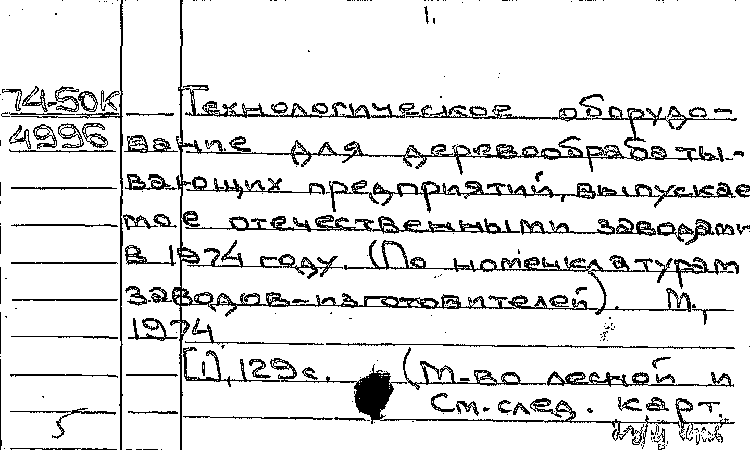 1.
74-50К Технологическое оборудо-
4996 вание для деревообрабаты-
вающих предприятий, выпускае
мое отечественными заводами
в 1974 году. (По номенклатурам
заводов-изготовителей). М.,
1974
[1], 129 с. (М-во лесной и
См. след. карт.
5